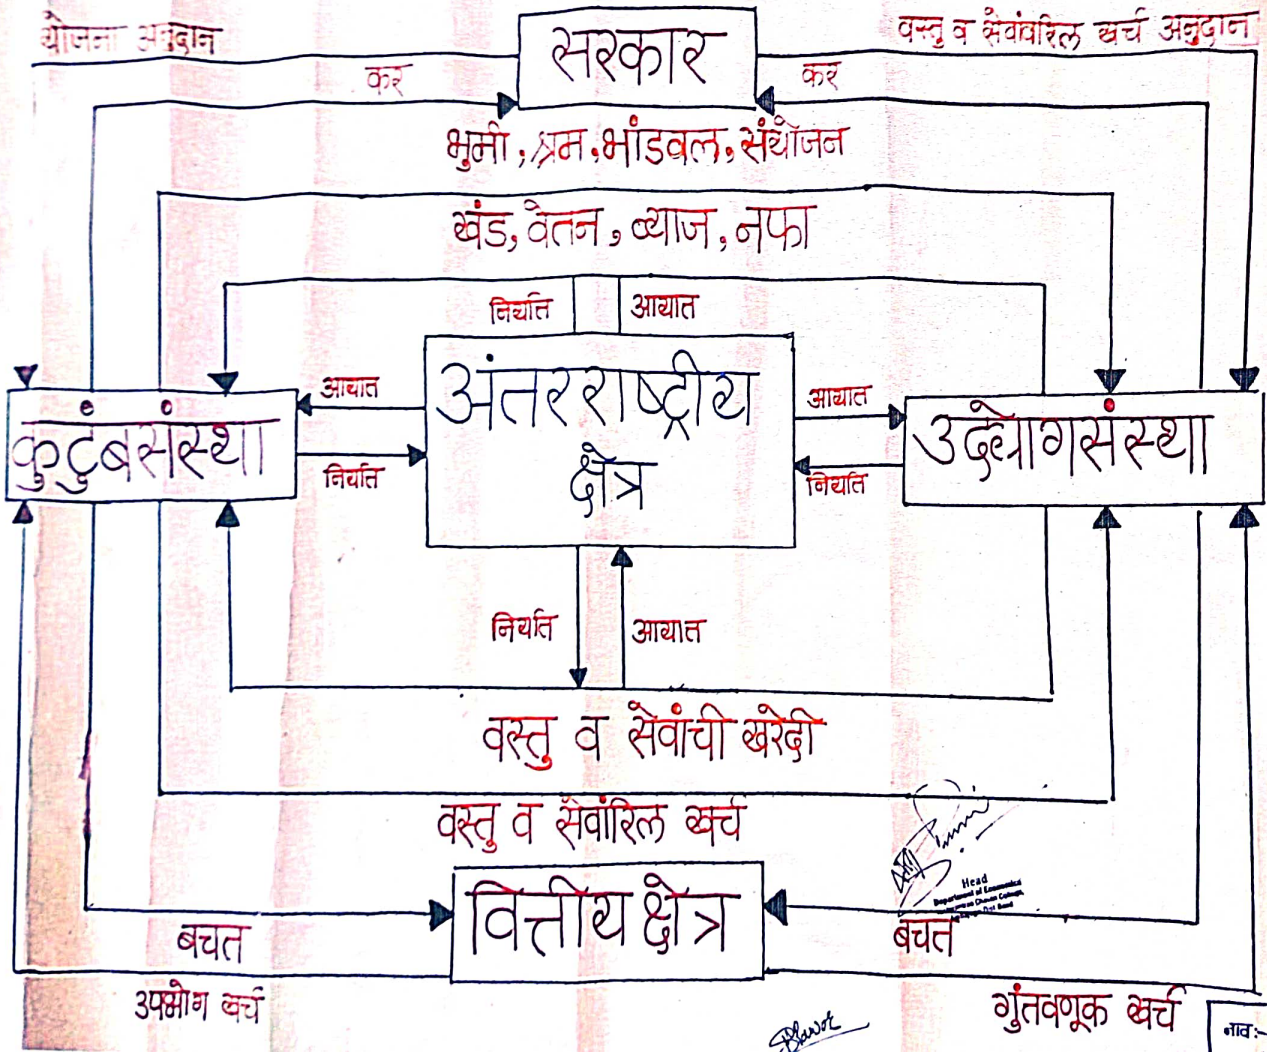 योजना अनुदान
सरकार
वस्तु व सेवांवरिल खर्च अनुदान
कर
कर
भुमी, श्रम, भांडवल, संयोजन
खंड, वेतन, व्याज, नफा
निर्यात
आयात
आयात
अंतरराष्ट्रीय
क्षेत्र
आयात
कुटुंबसंस्था
उद्योगसंस्था
निर्यात
निर्यात
निर्यात
आयात
वस्तु व सेवांची खरेदी
वस्तु व सेवांरिल खर्च
Head
Department of Economics
वित्तीय क्षेत्र
बचत
बचत
उपभोग खर्च
गुंतवणूक खर्च
नाव:-